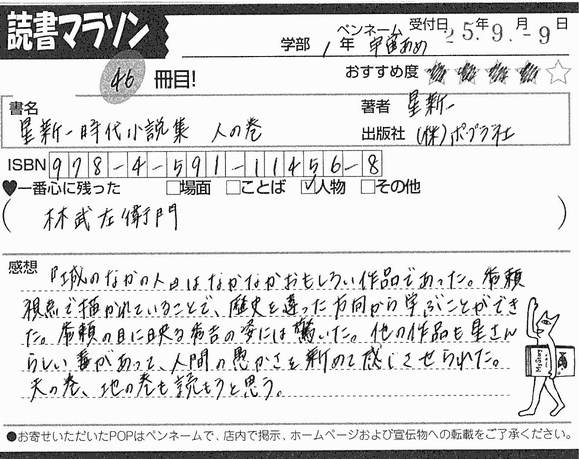 読書マラソン
学部 1年 ペンネーム 宇宙あめ 受付日 25年 9.月 -9日
46 冊目!
おすすめ度 ★★★★☆
書名 星新一時代小説集 人の巻
著者 星新一
出版社 (株)ポプラ社
ISBN 978-4-591-11456-8
♥一番心に残った □場面 □ことば ☑人物 □その他
( 林武左衛門 )
感想 『城のなかの人』はなかなかおもしろい作品であった。秀頼
視点で描かれていることで、歴史を違った方向から学ぶことができ
た。秀頼の目に映る秀吉の姿には驚いた。他の作品も星さん
らしい毒があって、人間の愚かさを新めて感じさせられた。
天の巻、地の巻も読もうと思う。
Mystery
●お寄せいただいたPOPはペンネームで、店内で掲示、ホームページおよび宣伝物への転載をご了承ください。